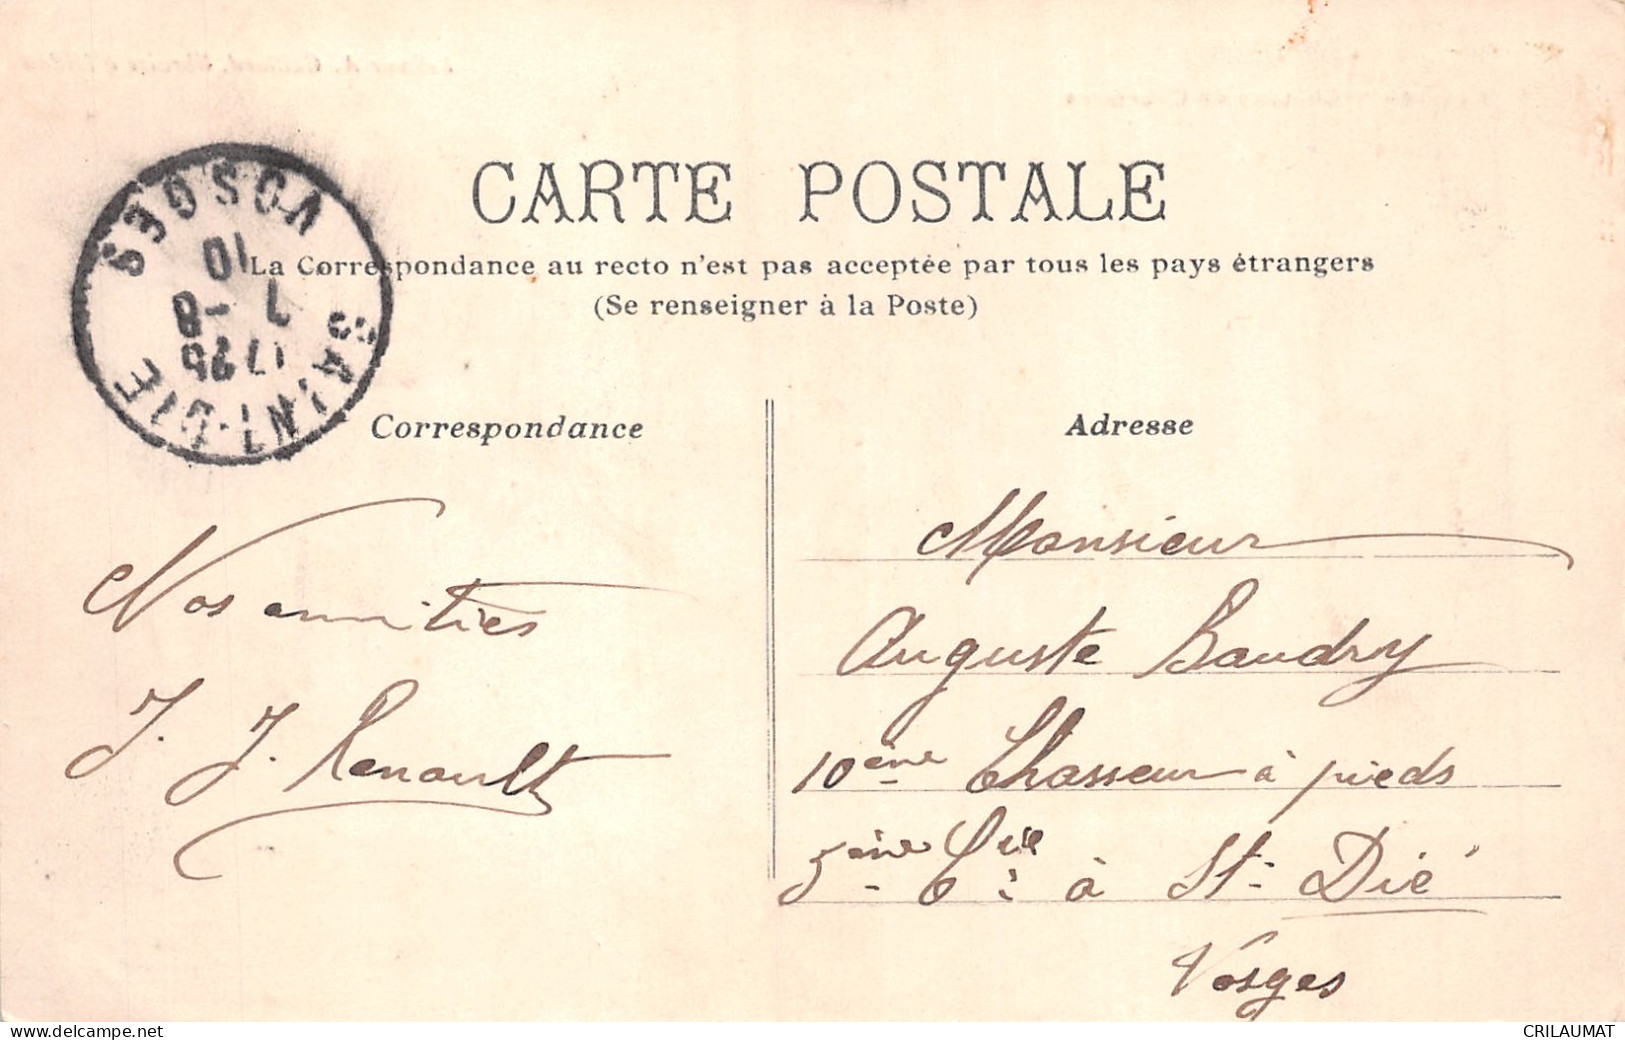 CARTE POSTALE
La Correspondance au recto n'est pas acceptée par tous les pays étrangers
(Se renseigner à la Poste)
SAINT-DIE
VOSGES
17 25
7 -8
10
Correspondance
Nos amitiés
J. J. Renault
Adresse
Monsieur
Auguste Baudry
10ème Chasseur à pieds
5ème Cie à St-Dié
Vosges
www.delcampe.net
CRILAUMAT